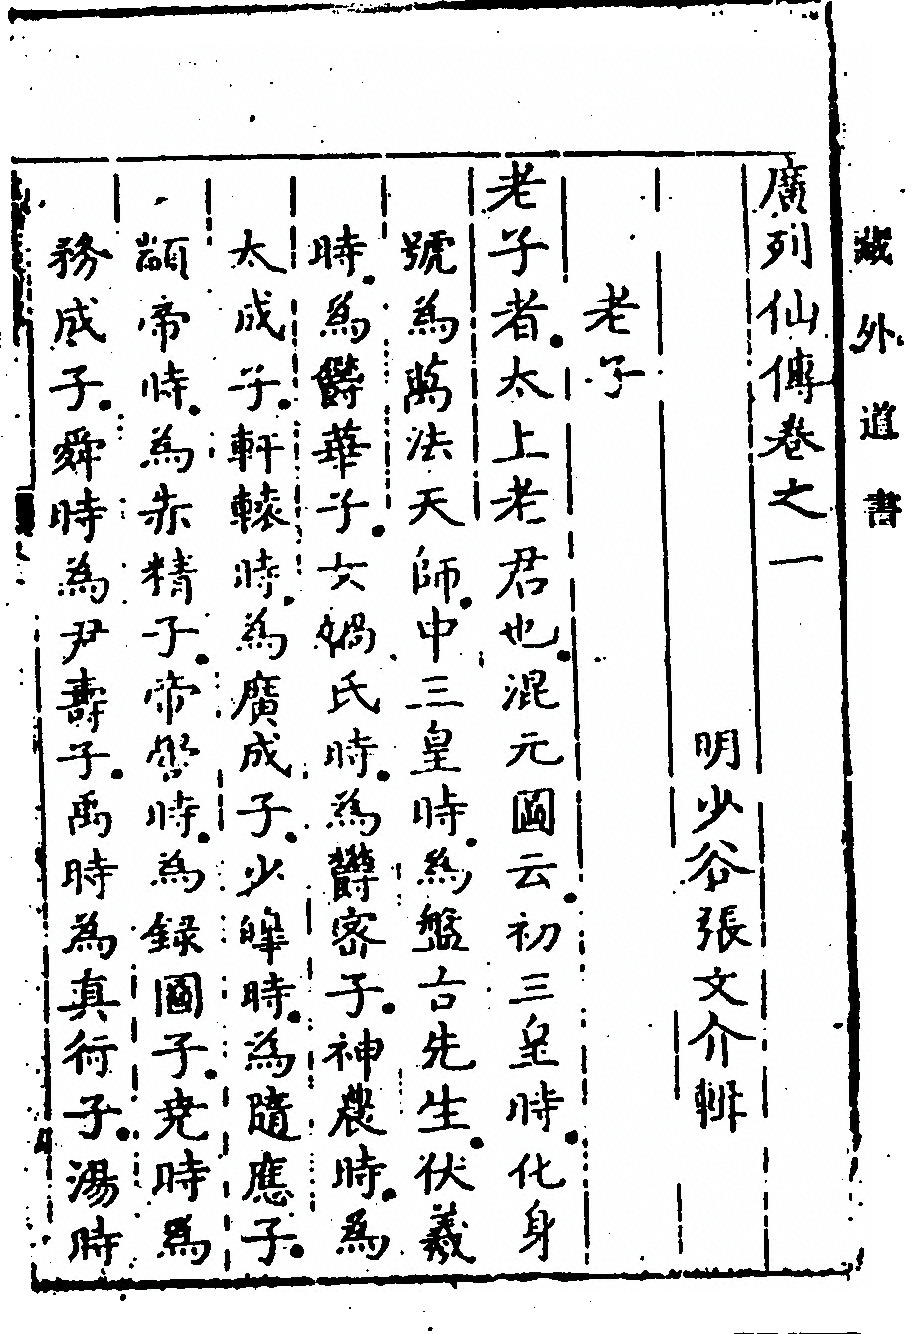 藏外道書
廣列仙傳卷之一
明少谷張文介輯
老子
老子者太上老君也混元圖云初三皇時化身
號為萬法天師中三皇時為盤古先生伏羲
時為欝華子女媧氏時為欝密子神農時為
太成子軒轅時為廣成子少皥時為隨應子
顓帝時為赤精子帝嚳時為録圖子尭時為
務成子舜時為尹壽子禹時為真行子湯時